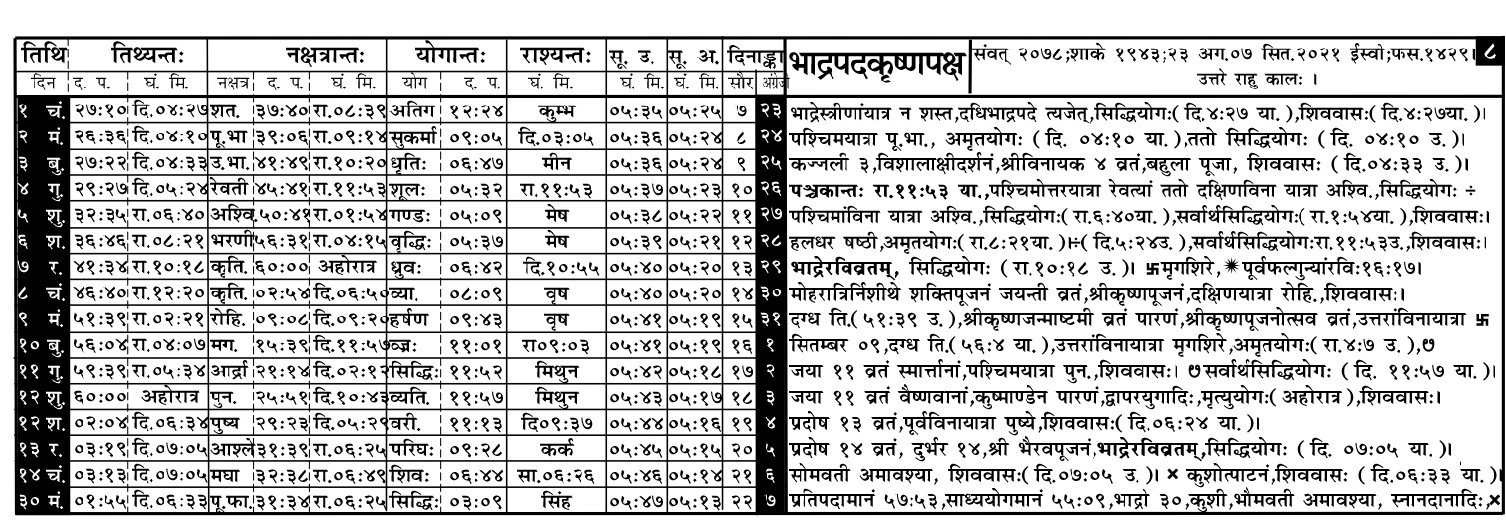 तिथि तिथ्यन्तः नक्षत्रान्तः योगान्तः राश्यन्तः सू. उ. सू. अ. दिनाङ्का भाद्रपदकृष्णपक्ष संवत् २०७८;शाके १९४३;२३ अग.०७ सित.२०२१ ईस्वो;फस.१४२९। ८
दिन द. प. घं. मि. नक्षत्र द. प. घं. मि. योग द. प. घं. मि. घं. मि. घं. मि. सौर अंग्रेज उत्तरे राहु कालः ।
१ चं. २७:१० दि.०४:२७ शत. ३७:४० रा.०८:३९ अतिग १२:२४ कुम्भ ०५:३५ ०५:२५ ७ २३ भाद्रेस्त्रीणांयात्र न शस्त,दधिभाद्रपदे त्यजेत्,सिद्धियोगः(दि.४:२७ या.),शिववासः(दि.४:२७या.)।
२ मं. २६:३६ दि.०४:१० पू.भा ३९:०६ रा.०९:१४ सुकर्मा ०९:०५ दि.०३:०५ ०५:३६ ०५:२४ ८ २४ पश्चिमयात्रा पू.भा., अमृतयोगः (दि. ०४:१० या.),ततो सिद्धियोगः (दि. ०४:१० उ.)।
३ बु. २७:२२ दि.०४:३३ उ.भा. ४१:४९ रा.१०:२० धृतिः ०६:४७ मीन ०५:३६ ०५:२४ ९ २५ कज्जली ३,विशालाक्षीदर्शनं,श्रीविनायक ४ व्रतं,बहुला पूजा, शिववासः (दि.०४:३३ उ.)।
४ गु. २९:२७ दि.०५:२४ रेवती ४५:४१ रा.११:५३ शूलः ०५:३२ रा.११:५३ ०५:३७ ०५:२३ १० २६ पञ्चकान्तः रा.११:५३ या.,पश्चिमोत्तरयात्रा रेवत्यां ततो दक्षिणविना यात्रा अश्वि.,सिद्धियोगः ÷
५ शु. ३२:३५ रा.०६:४० अश्वि. ५०:४१ रा.०१:५४ गण्डः ०५:०९ मेष ०५:३८ ०५:२२ ११ २७ पश्चिमांविना यात्रा अश्वि.,सिद्धियोगः(रा.६:४०या.),सर्वार्थसिद्धियोगः(रा.१:५४या.),शिववासः।
६ श. ३६:४६ रा.०८:२१ भरणी ५६:३१ रा.०४:१५ वृद्धिः ०५:३७ मेष ०५:३९ ०५:२१ १२ २८ हलधर षष्ठी,अमृतयोगः(रा.८:२१या.)÷(दि.५:२४उ.),सर्वार्थसिद्धियोगःरा.११:५३उ,शिववासः।
७ र. ४१:३४ रा.१०:१८ कृति. ६०:०० अहोरात्र ध्रुवः ०६:४२ दि.१०:५५ ०५:४० ०५:२० १३ २९ भाद्रेरविव्रतम्, सिद्धियोगः (रा.१०:१८ उ.)। 卐मृगशिरे,✷पूर्वफल्गुन्यांरविः१६:१७।
८ चं. ४६:४० रा.१२:२० कृति. ०२:५४ दि.०६:५० व्या. ०८:०९ वृष ०५:४० ०५:२० १४ ३० मोहरात्रिर्निशीथे शक्तिपूजनं जयन्ती व्रतं,श्रीकृष्णपूजनं,दक्षिणयात्रा रोहि.,शिववासः।
९ मं. ५१:३९ रा.०२:२१ रोहि. ०९:०८ दि.०९:२० हर्षण ०९:४३ वृष ०५:४१ ०५:१९ १५ ३१ दग्ध ति.(५१:३९ उ.),श्रीकृष्णजन्माष्टमी व्रतं पारणं,श्रीकृष्णपूजनोत्सव व्रतं,उत्तरांविनायात्रा 卐
१० बु. ५६:०४ रा.०४:०७ मग. १५:३९ दि.११:५७ व्ज्रः ११:०१ रा०९:०३ ०५:४१ ०५:१९ १६ १ सितम्बर ०९,दग्ध ति.(५६:४ या.),उत्तरांविनायात्रा मृगशिरे,अमृतयोगः(रा.४:७ उ.),७
११ गु. ५९:३९ रा.०५:३४ आर्द्रा २१:१४ दि.०२:१२ सिद्धिः ११:५२ मिथुन ०५:४२ ०५:१८ १७ २ जया ११ व्रतं स्मार्त्तानां,पश्चिमयात्रा पुन.,शिववासः। ७सर्वार्थसिद्धियोगः (दि. ११:५७ या.)।
१२ शु. ६०:०० अहोरात्र पुन. २५:५१ दि.१०:४३ व्यति. ११:५७ मिथुन ०५:४३ ०५:१७ १८ ३ जया ११ व्रतं वैष्णवानां,कुष्माण्डेन पारणं,द्वापरयुगादिः,मृत्युयोगः(अहोरात्र),शिववासः।
१२ श. ०२:०४ दि.०६:३४ पुष्य २९:२३ दि.०५:२९ वरी. ११:१३ दि०९:३७ ०५:४४ ०५:१६ १९ ४ प्रदोष १३ व्रतं,पूर्वविनायात्रा पुष्ये,शिववासः(दि.०६:२४ या.)।
१३ र ०३:१९ दि.०७:०५ आश्ले ३१:३९ रा.०६:२५ परिघः ०९:२८ कर्क ०५:४५ ०५:१५ २० ५ प्रदोष १४ व्रतं, दुर्भर १४,श्री भैरवपूजनं,भाद्रेरविव्रतम्,सिद्धियोगः (दि. ०७:०५ या.)।
१४ चं. ०३:१३ दि.०७:०५ मघा ३२:३८ रा.०६:४९ शिवः ०६:४४ सा.०६:२६ ०५:४६ ०५:१४ २१ ६ सोमवती अमावश्या, शिववासः(दि.०७:०५ उ.)। × कुशोत्पाटनं,शिववासः (दि.०६:३३ या.)।
३० मं. ०१:५५ दि.०६:३३ पू.फा. ३१:३४ रा.०६:२५ सिद्धिः ०३:०९ सिंह ०५:४७ ०५:१३ २२ ७ प्रतिपदामानं ५७:५३,साध्ययोगमानं ५५:०९,भाद्रो ३०,कुशी,भौमवती अमावश्या, स्नानदानादिः,×